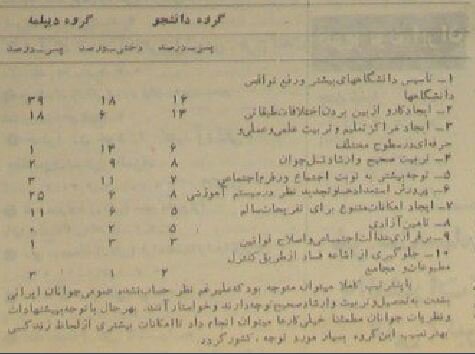 گروه دانشجو گروه دیپلمه
پسر_درصد دختر_درصد پسر_درصد
۱_ تاسیس دانشگاههای بیشتر و رفع نواقص
دانشگاهها ۱۶ ۱۸ ۳۹
۲_ ایجاد کار و از بین بردن اختلافات طبقاتی ۱۳ ۶ ۱۸
۳_ ایجاد مراکز تعلیم و تربیت علمی و عملی و
حرفه‌ای در سطوح مختلف ۶ ۱۴ ۱
۴_ تربیت صحیح و ارشاد نسل جوان ۸ ۹ ۲
۵_ توجه بیشتر به تربیت اجتماع و رفرم اجتماعی ۷ ۱۱ ۳
۶_ پرورش استعدادها و تجدید نظر در سیستم آموزشی ۸ ۶ ۲۵
۷_ ایجاد امکانات متنوع برای تفریحات سالم ۵ ۶ ۱۱
۸_ تامین آزادی ۵ ۲ ۰
۹_ برقراری عدالت اجتماعی و اصلاح قوانین ۳ ۳ ۱
۱۰_ جلوگیری از اشاعه فساد از طریق کنترل
مطبوعات و مجامع ۲ ۱ ۳
باین ترتیب کاملا میتوان متوجه بود که علیرغم نظر حساب نشده عمومی جوانان ایرانی
بشدت به تحصیل و تربیت و ارشاد صحیح توجه دارند و خواستار آنند. بهر حال با توجه به پیشنهادات
و نظریات جوانان مطمئنا خیلی کارها میتوان انجام داد تا امکانات بیشتری از لحاظ زندگی
بهتر نصیب این گروه بسیار مورد توجه ، کشور گردد.